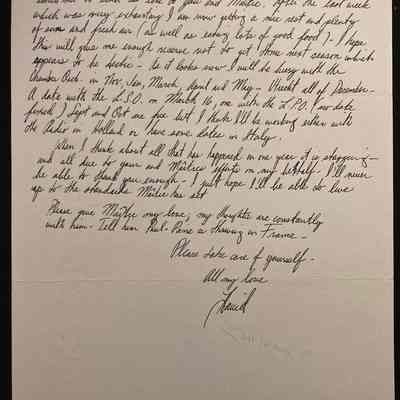 to see of you and Maître. After the last week
which was very exhausting I am now getting a nice rest and plenty
of sun and fresh air (as well as eating lots of good food). I hope
this will give me enough reserve not to get stone next season which
appears to be hectic - As it looks now I will be busy with the
Chamber Orch. in Nov, Jan, March, April and May - Utrecht all of December -
A date with the L.S.O. on March 16, one with the L.P.O. (our date
period) Sept and Oct are free but I think I'll be working either with
the in Holland or have some dates in Italy.
When I think about all that has happened in one year it is staggering -
and all due to your and Maître's efforts on my behalf. I'll never
be able to thank you enough - I just hope I'll be able to live
up to the standards Maître has set
Please give Maître my love, my thoughts are constantly
with him - Tell him Paul-Pierre is in France -
Please take care of yourself -
All my love
David